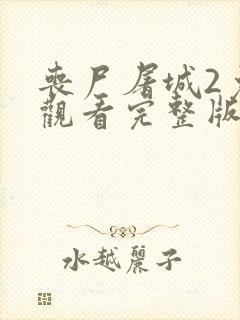 喪尸屠城2
觀看完整版
水越麗子